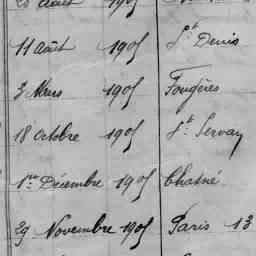 20 Août 1905
11 Août 1905 St Denis
3 Mars 1905 Fougères
18 Octobre 1905 St Servan
1er Décembre 1905 Chasné
29 Novembre 1905 Paris 13